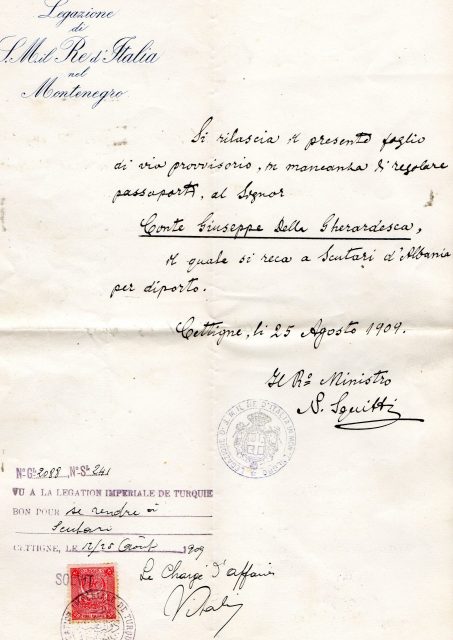 Legazione
di
S. M. il Re d'Italia
nel
Montenegro
Si rilascia il presente foglio
di via provvisorio, in mancanza di regolare
passaporto, al Signor
Conte Giuseppe Della Gherardesca,
il quale si reca a Scutari d'Albania
per diporto.
Cettigne, li 25 Agosto 1909.
Il Ro Ministro
N. Squitti
No Gl 2089 No Sl 241
VU A LA LEGATION IMPERIALE DE TURQUIE
BON POUR se rendre à
Scutari
CETTIGNE, LE 12/25 Août 1909
Le Chargé d'affaires